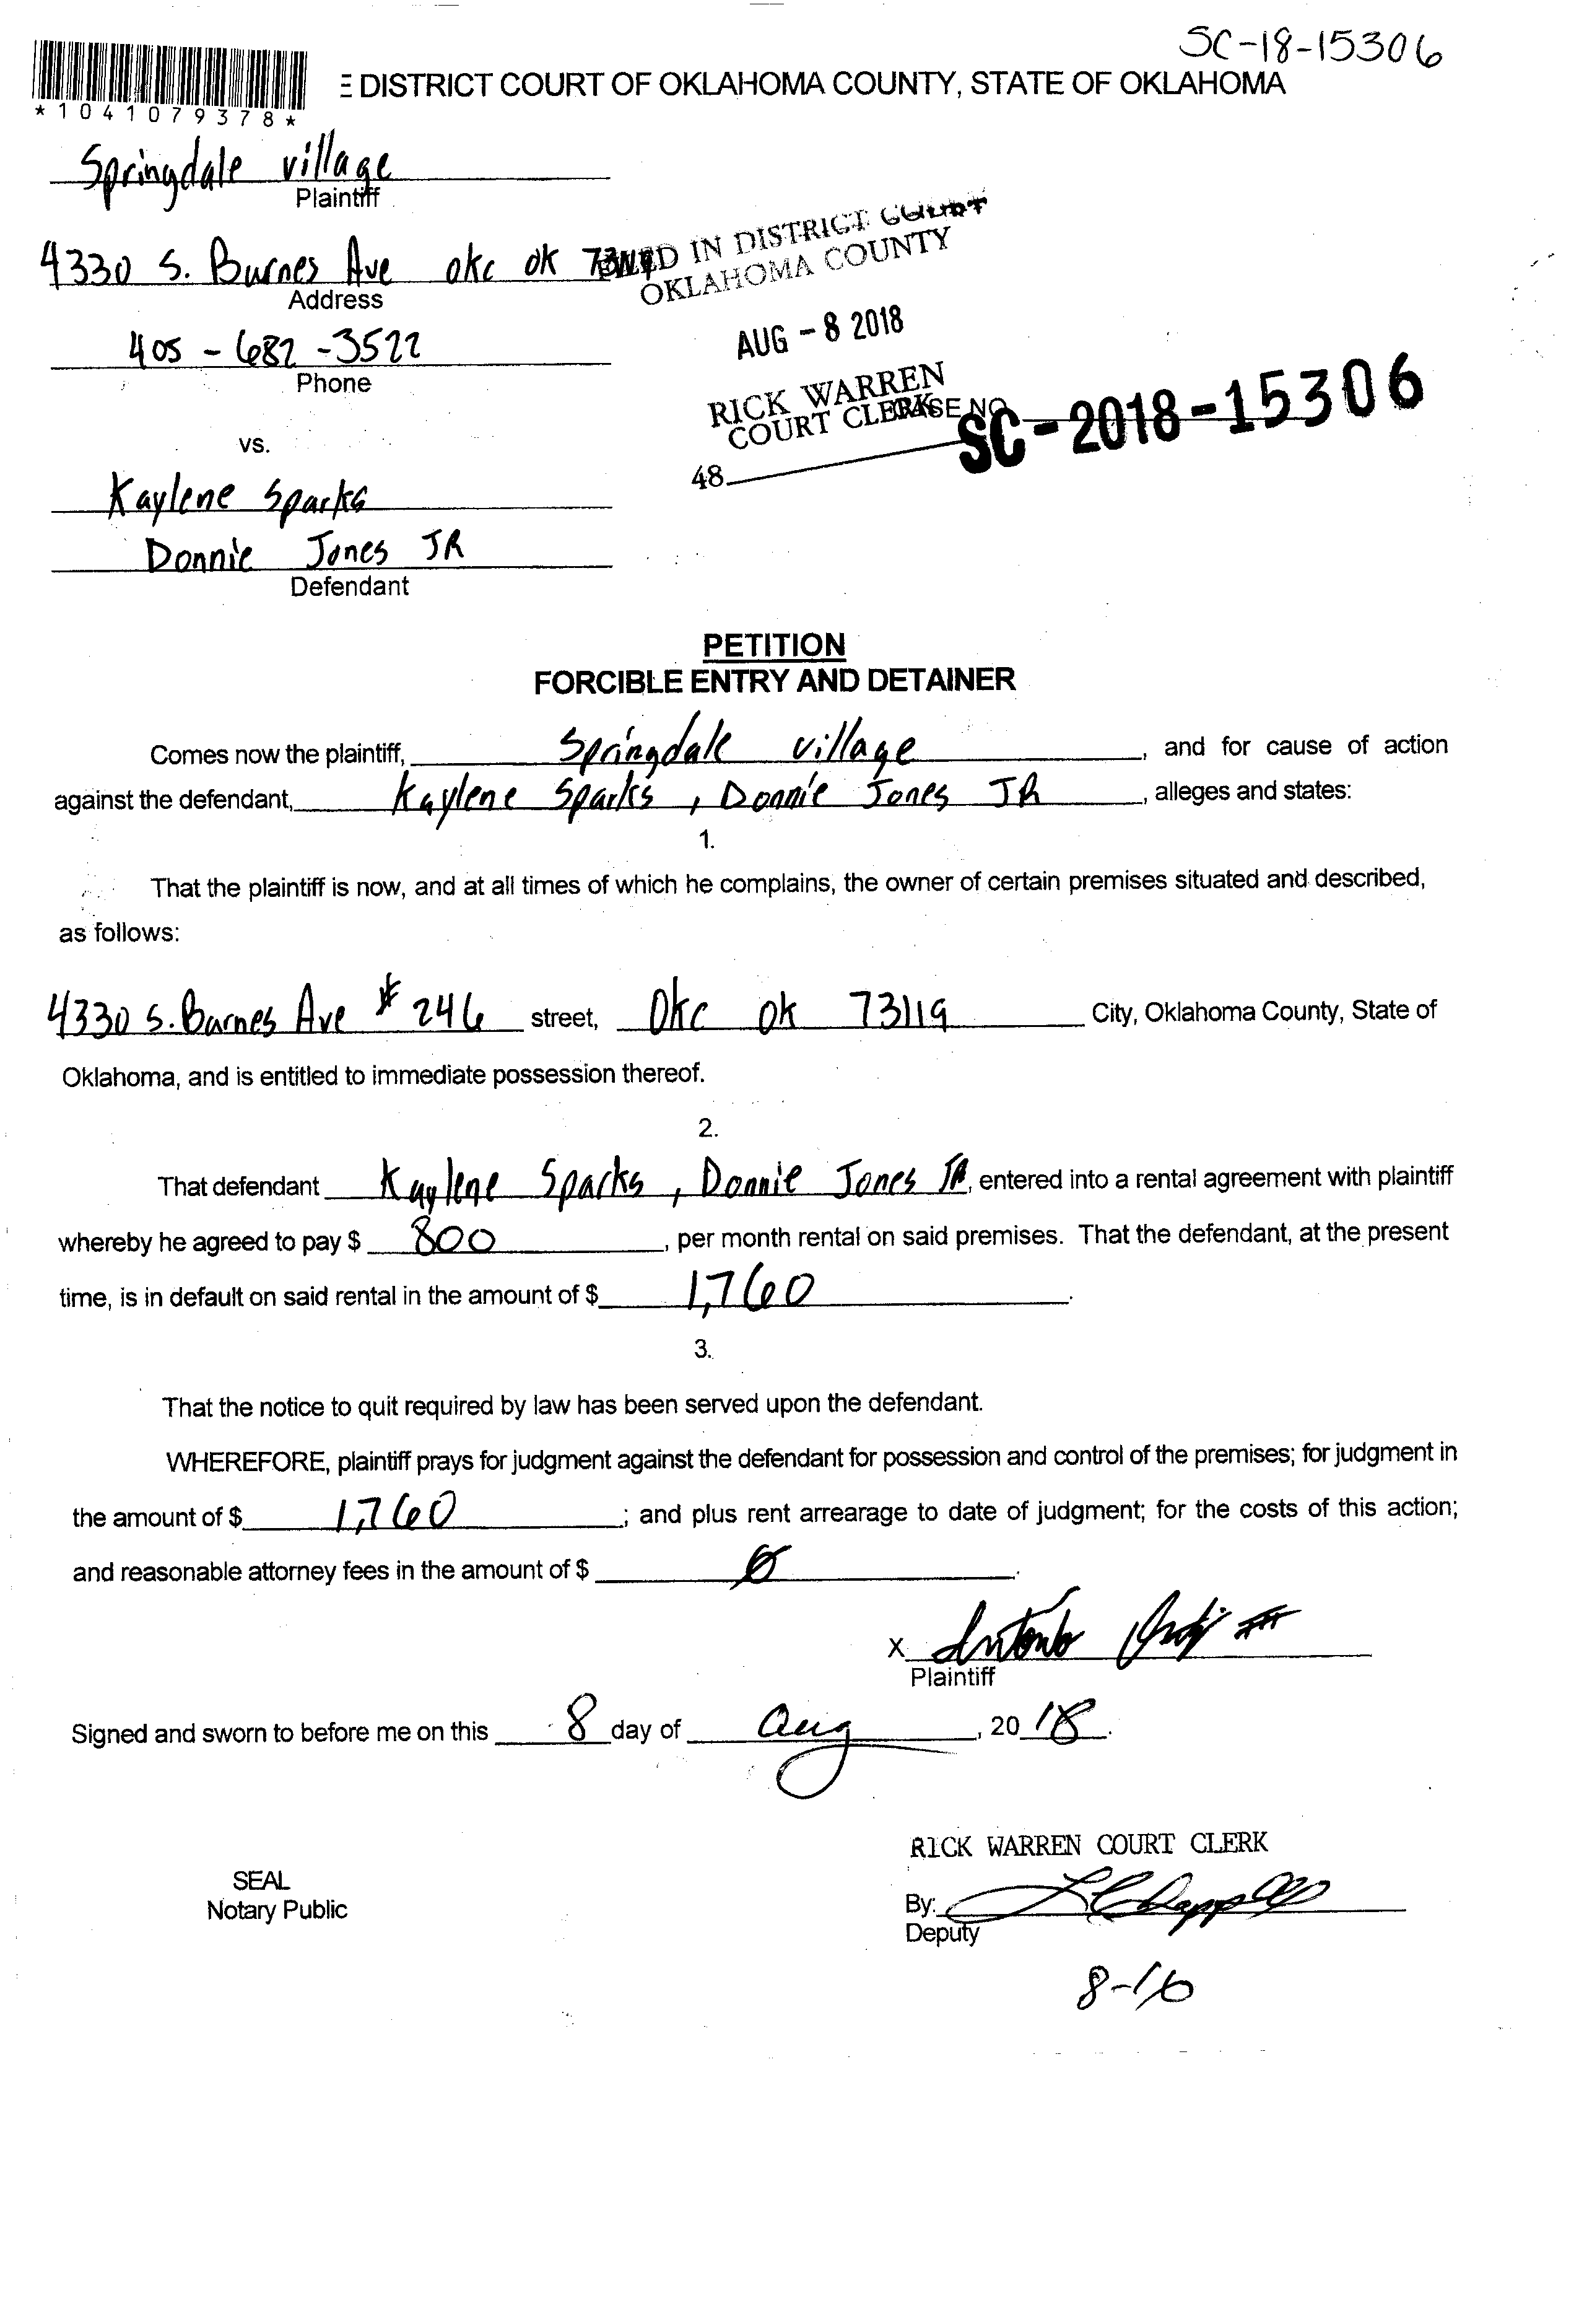 SC-18-15306
*1041079378*
E DISTRICT COURT OF OKLAHOMA COUNTY, STATE OF OKLAHOMA
Springdale village
Plaintiff
4330 S. Burnes Ave okc ok
Address
FILED IN DISTRICT COURT
OKLAHOMA COUNTY
AUG - 8 2018
RICK WARREN
COURT CLERK
405-682-3522
Phone
CASE NO.
SC-2018-15306
48
vs.
Kaylene Sparks
Donnie Jones JR
Defendant
PETITION
FORCIBLE ENTRY AND DETAINER
Comes now the plaintiff, Springdale village, and for cause of action
against the defendant, Kaylene Sparks, Donnie Jones JR, alleges and states:
1.
That the plaintiff is now, and at all times of which he complains, the owner of certain premises situated and described,
as follows:
4330 S. Burnes Ave # 246 street, Okc ok 73119 City, Oklahoma County, State of
Oklahoma, and is entitled to immediate possession thereof.
2.
That defendant Kaylene Sparks, Donnie Jones JR, entered into a rental agreement with plaintiff
whereby he agreed to pay $ 800, per month rental on said premises. That the defendant, at the present
time, is in default on said rental in the amount of $ 1,760.
3.
That the notice to quit required by law has been served upon the defendant.
WHEREFORE, plaintiff prays for judgment against the defendant for possession and control of the premises; for judgment in
the amount of $ 1,760; and plus rent arrearage to date of judgment; for the costs of this action;
and reasonable attorney fees in the amount of $ 0.
X Antonio
Plaintiff
Signed and sworn to before me on this 8 day of Aug, 2018.
RICK WARREN COURT CLERK
SEAL
Notary Public
By:
Deputy
8-16